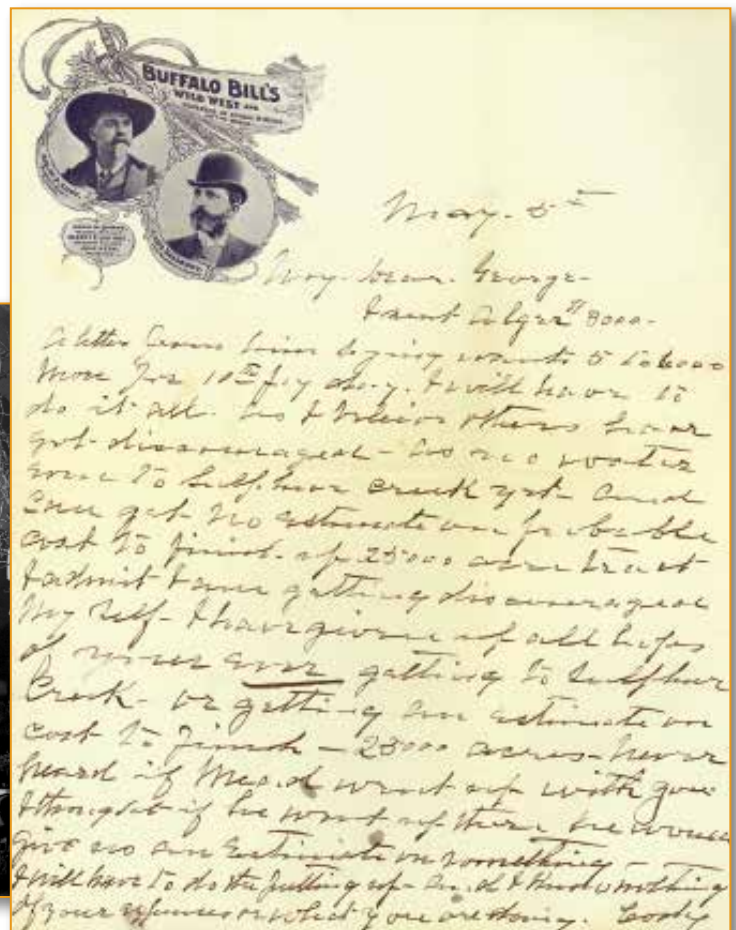 BUFFALO BILL'S
WILD WEST AND
May. 5th
My. Dear. George-
I sent Alger $3000-
A letter from him saying wants 5 to 6000
more for 10th pay day. I will have to
do it all. as I believe others have
got discouraged- as no water
come to Sulphur creek yet- and
can get no estimate on probable
cost to finish- up 25000 acre tract
I admit I am getting discouraged
My self- I have given up all hopes
of your ever getting to Sulphur
Creek- or getting an estimate on
cost to finish - 25000 acres- never
heard if Mead went up with you
I thought if he went up there he would
give us an Estimate on something-
I will have to do the putting up- and I know nothing
of your expenses or what you are doing. Cody